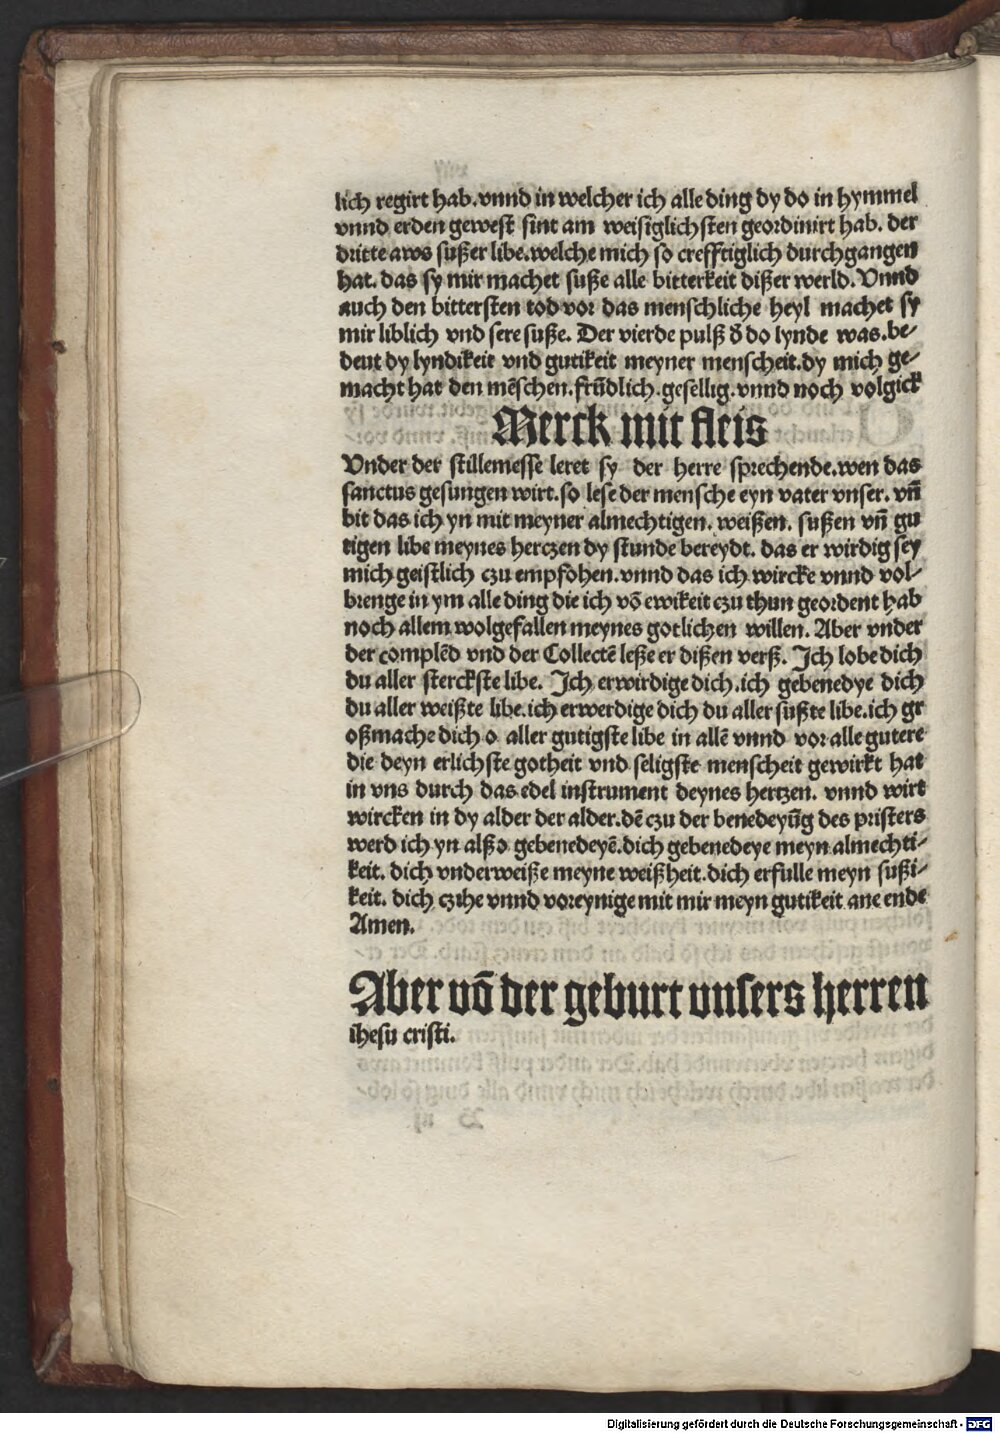 lich regirt hab.vnnd in welcher ich alle ding dy do in hymmel
vnnd erden gewest sint am weisiglichsten geordinirt hab. der
dritte aws sußer libe.welche mich so crefftiglich durchgangen
hat. das sy mir machet suße alle bitterkeit dißer werld. Vnnd
auch den bittersten tod vor das menschliche heyl machet sy
mir liblich vnd sere suße. Der vierde pulß d̕ do lynde was.be⸗
deut dy lyndikeit vnd gutikeit meyner menscheit.dy mich ge⸗
macht hat den mēschen.frūdlich.gesellig.vnnd noch volgick
Merck mit fleis
Vnder der stillemesse leret sy der herre sprechende.wen das
sanctus gesungen wirt.so lese der mensche eyn vater vnser. vn̄
bit das ich yn mit meyner almechtigen. weißen. sußen vn̄ gu
tigen libe meynes herczen dy stunde bereydt. das er wirdig sey
mich geistlich czu empfohen.vnnd das ich wircke vnnd vol⸗
brenge in ym alle ding die ich vō ewikeit czu thun geordent hab
noch allem wolgefallen meynes gotlichen willen. Aber vnder
der complēd vnd der Collectē leße er dißen verß. Ich lobe dich
du aller sterckste libe. Ich erwirdige dich.ich gebenedye dich
du aller weißte libe.ich erwerdige dich du aller sußte libe.ich gr
oßmache dich o aller gutigste libe in allē vnnd vor alle gutere
die deyn erlichste gotheit vnd seligste menscheit gewirkt hat
in vns durch das edel instrument deynes hertzen. vnnd wirt
wircken in dy alder der alder.dē czu der benedeyūg des pristers
werd ich yn alßo gebenedeyē.dich gebenedeye meyn almechti⸗
keit. dich vnderweiße meyne weißheit.dich erfulle meyn sußi⸗
keit. dich czihe vnnd voreynige mit mir meyn gutikeit ane ende
Amen.
Aber vō der geburt vnsers herren
ihesu cristi.
Digitalisierung gefördert durch die Deutsche Forschungsgemeinschaft - DFG